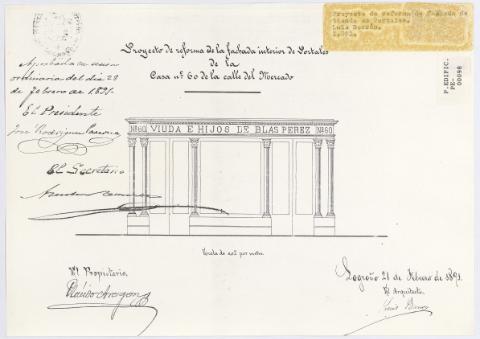 Proyecto de reforma de fachada de
tienda en Portales.
Luis Barrón.
1.891.
P.EDIFIC.
PE-
00098
Proyecto de reforma de la fachada interior de Portales
de la
Casa nº 60 de la calle del Mercado
Aprobado en sesión
ordinaria del dia 28
de febrero de 1891.
El Presidente
José Rodriguez
El Secretario
Nº60 VIUDA E HIJOS DE BLAS PEREZ Nº60
Escala de 0,05 por metro
El Propietario,
Plácido Aragon
Logroño 21 de Febrero de 1891.
El Arquitecto,
Luis Barron